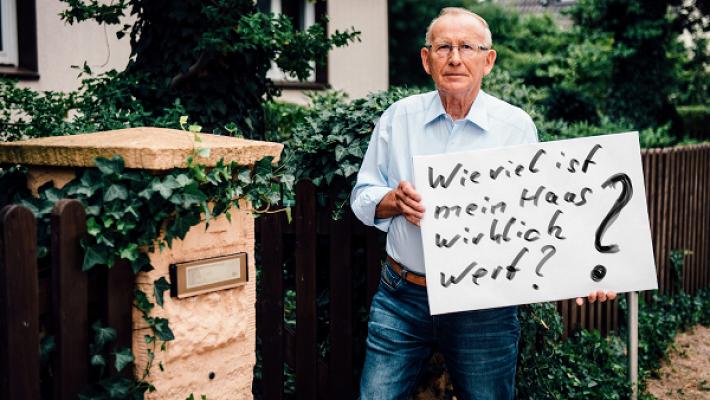 Wieviel ist
mein Haus
wirklich
wert?
?